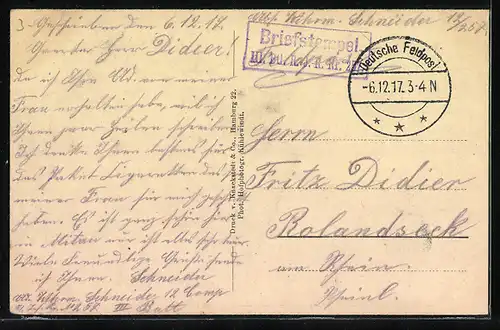 Geschrieben den 6.12.17
Geerter Herr Didier!
da ich Ihre Ad. von meiner
Frau erhalten habe, will ich
Ihnen paar Zeilen schreiben
Ich danke Ihnen bestens für
das Paket Zigaretten das
meiner Frau für mich
haben. Es ist ganz schön hier
in Mitau nur ist alles sehr teuer
Viele freundliche Grüße sendet
ich Ihnen Schneider
Schneider 12 Comp
III Batt
Druck v. Knackstedt & Co., Hamburg 22.
Phot. Hofphotogr. Kühlewindt.
Abs. Wehrm. Schneider 12/257
Briefstempel
Deutsche Feldpost
-6.12.17. 3-4 N
Herrn
Fritz Didier
Rolandseck
am Rhein
Rheinl.